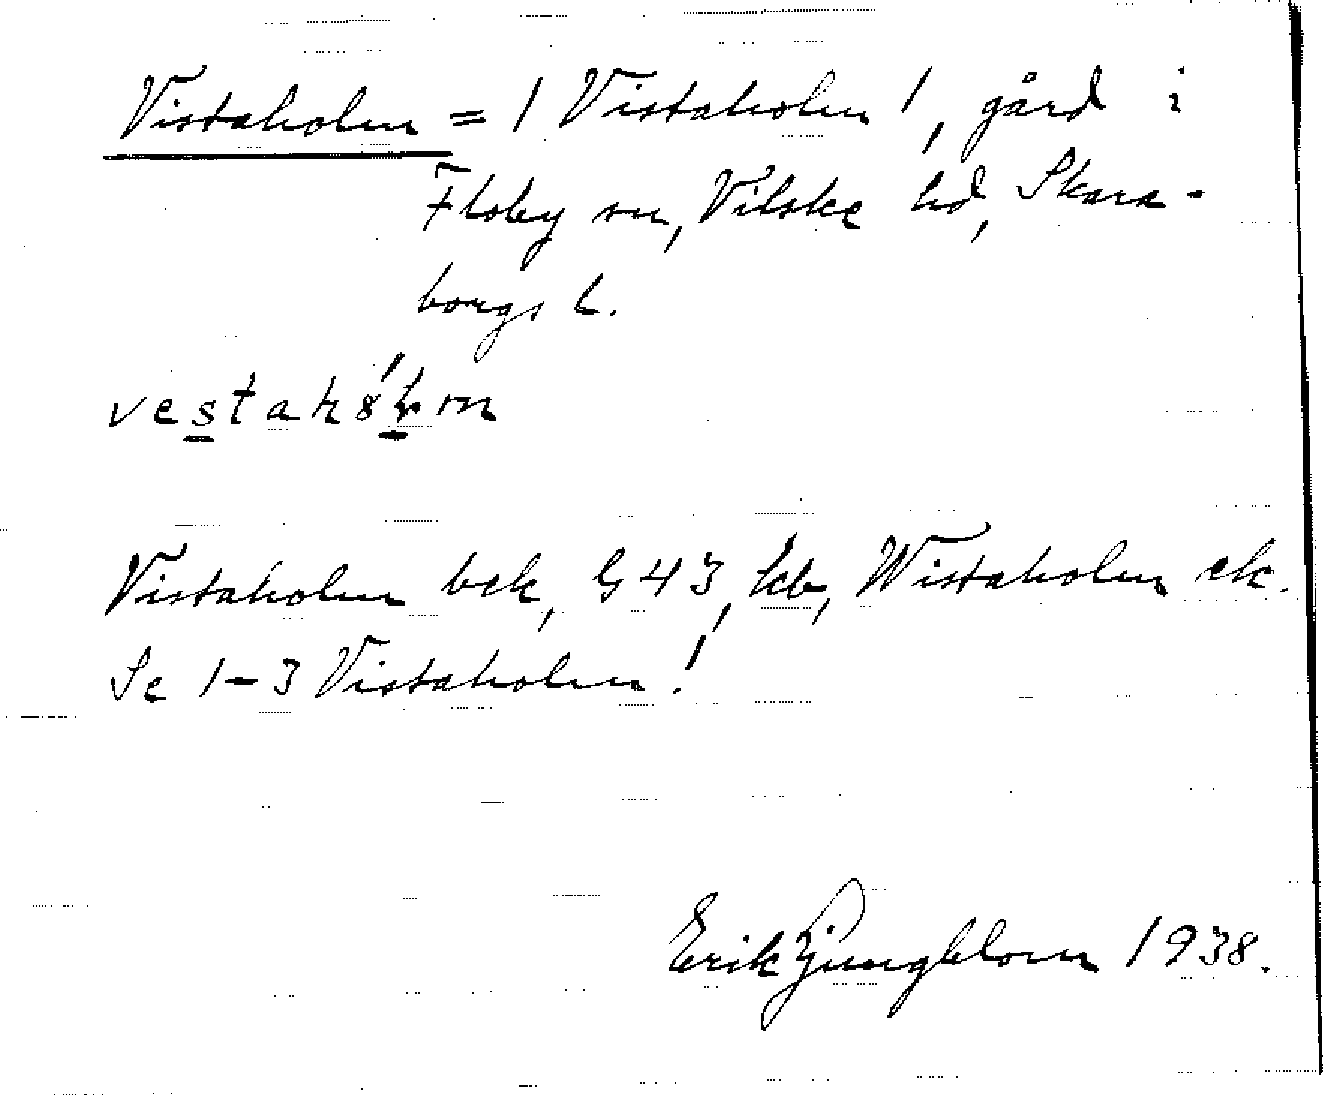 Vistaholm = / Vistaholm /, gård i
Floby sn, Vilske hd, Skara-
borgs l.
vestah
Vistaholm bek, G 43, kb, Wistaholm ek.
Se 1-3 Vistaholm!
Erik Ljungblom 1938.